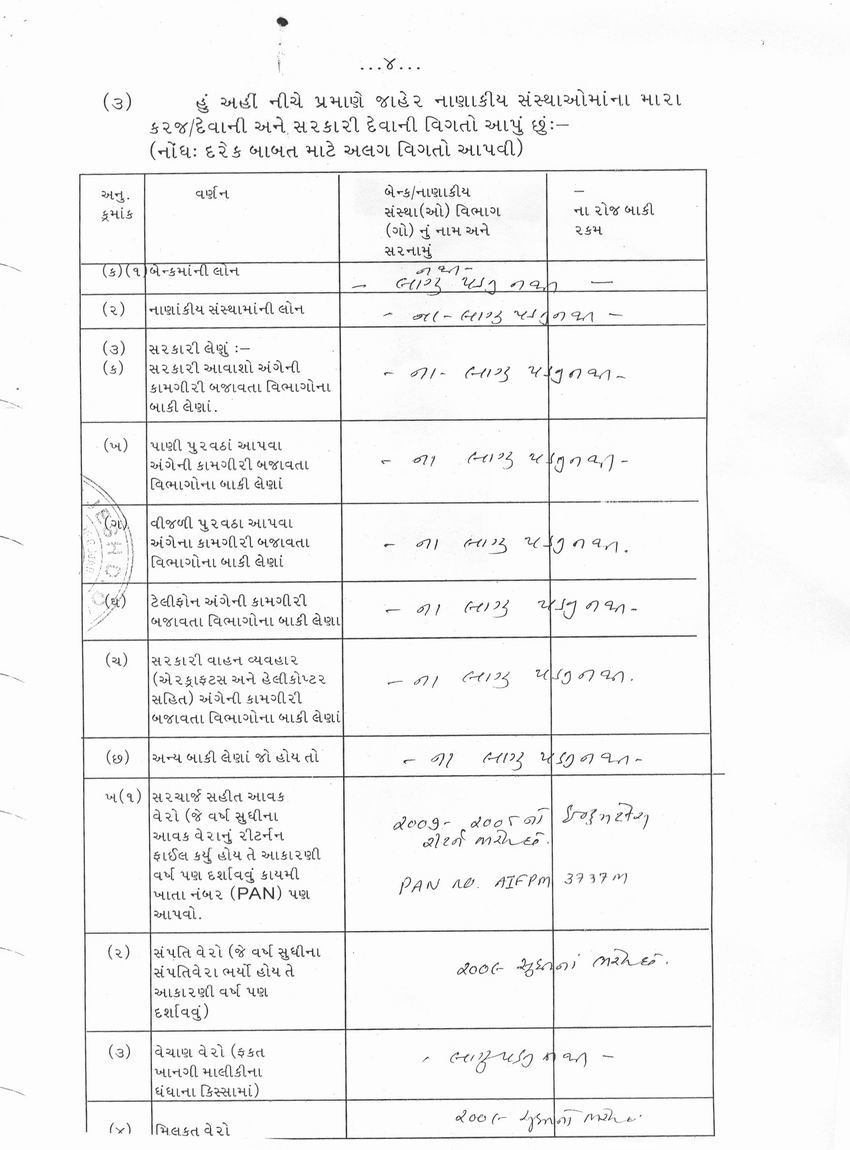 ...૪...
(૩) હું અહીં નીચે પ્રમાણે જાહેર નાણાકીય સંસ્થાઓમાંના મારા
કરજ/દેવાની અને સરકારી દેવાની વિગતો આપું છુંઃ-
(નોંધઃ દરેક બાબત માટે અલગ વિગતો આપવી)
અનુ.
ક્રમાંક
વર્ણન
બેન્ક/નાણાકીય
સંસ્થા(ઓ) વિભાગ
(ગો) નું નામ અને
સરનામું
–
ના રોજ બાકી
રકમ
(ક)(૧) બેન્કમાંની લોન
- લાગુ પડતુ નથી —
(૨) નાણાંકીય સંસ્થામાંની લોન
- ના - લાગુ પડતુ નથી -
(૩) સરકારી લેણું :-
(ક) સરકારી આવાશો અંગેની
કામગીરી બજાવતા વિભાગોના
બાકી લેણાં.
- ના - લાગુ પડતુ નથી -
(ખ) પાણી પુરવઠાં આપવા
અંગેની કામગીરી બજાવતા
વિભાગોના બાકી લેણાં
- ના લાગુ પડતુ નથી -
(ગ) વીજળી પુરવઠા આપવા
અંગેના કામગીરી બજાવતા
વિભાગોના બાકી લેણાં
- ના લાગુ પડતુ નથી.
(ઘ) ટેલીફોન અંગેની કામગીરી
બજાવતા વિભાગોના બાકી લેણા
- ના લાગુ પડતુ નથી -
(ચ) સરકારી વાહન વ્યવહાર
(એરક્રાફ્ટસ અને હેલીકોપ્ટર
સહિત) અંગેની કામગીરી
બજાવતા વિભાગોના બાકી લેણાં
- ના લાગુ પડતુ નથી.
(છ) અન્ય બાકી લેણાં જો હોય તો
- ના લાગુ પડતુ નથી -
ખ(૧) સરચાર્જ સહીત આવક
વેરો (જે વર્ષ સુધીના
આવક વેરાનું રીટર્નન
ફાઈલ કર્યુ હોય તે આકારણી
વર્ષ પણ દર્શાવવું કાયમી
ખાતા નંબર (PAN) પણ
આપવો.
રીટર્ન ભરેલ છે.
PAN NO. AIFPM 3737M
(૨) સંપતિ વેરો (જે વર્ષ સુધીના
સંપતિવેરા ભર્યો હોય તે
આકારણી વર્ષ પણ
દર્શાવવું)
સુધીનાં ભરેલ છે.
(૩) વેચાણ વેરો (ફકત
ખાનગી માલીકીના
ધંધાના કિસ્સામાં)
લાગુ પડતુ નથી -
(૪) મિલકત વેરો
સુધીનો ભરેલ